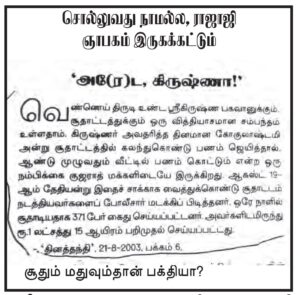 சொல்லுவது நாமல்ல, ராஜாஜி
ஞாபகம் இருகக்கட்டும்
'அ(ரே)ட, கிருஷ்ணா!'
வெண்ணெய் திருடி உண்ட ஸ்ரீகிருஷ்ண பகவானுக்கும்,
சூதாட்டத்துக்கும் ஒரு வித்தியாசமான சம்பந்தம்
உள்ளதாம். கிருஷ்ணர் அவதரித்த தினமான கோகுலாஷ்டமி
அன்று சூதாட்டத்தில் கலந்துகொண்டு பணம் ஜெயித்தால்,
ஆண்டு முழுவதும் வீட்டில் பணம் கொட்டும் என்ற ஒரு
நம்பிக்கை குஜராத் மக்களிடையே இருக்கிறது. ஆகஸ்ட் 19-
ஆம் தேதியன்று இதைச் சாக்காக வைத்துக்கொண்டு சூதாட்டம்
நடத்தியவர்களைப் போலீசார் மடக்கிப் பிடித்தனர். ஒரே நாளில்
சூதாடியதாக 371 பேர் கைது செய்யப்பட்டனர். அவர்களிடமிருந்து
ரூ.1 லட்சத்து 15 ஆயிரம் பறிமுதல் செய்யப்பட்டது.
- 'தினத்தந்தி', 21-8-2003, பக்கம் 6.
சூதும் மதுவும்தான் பக்தியா?